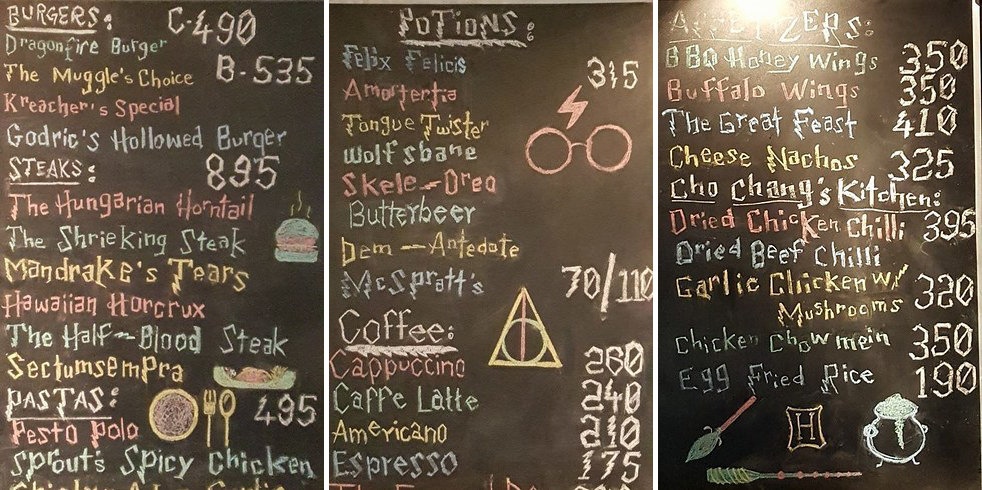 BURGERS: C-490
Dragonfire Burger
The Muggle's Choice B-535
Kreacher's Special
Godric's Hollowed Burger
STEAKS: 895
The Hungarian Horntail
The Shrieking Steak
Mandrake's Tears
Hawaiian Horcrux
The Half-Blood Steak
Sectumsempra
PASTAS: 495
Pesto Polo
Sprout's Spicy Chicken
POTIONS:
Felix Felicis 315
Amortertia
Tongue Twister
Wolfsbane
Skele-Oreo
Butterbeer
Dem-Antedote
McSpratt's 70/110
Coffee:
Cappuccino 260
Caffe Latte 240
Americano 210
Espresso 175
APPETIZERS:
BBQ Honey Wings 350
Buffalo Wings 350
The Great Feast 410
Cheese Nachos 325
Cho Chang's Kitchen:
Dried Chicken Chilli 395
Dried Beef Chilli
Garlic Chicken W/ Mushrooms 320
Chicken Chowmein 350
Egg Fried Rice 190
H